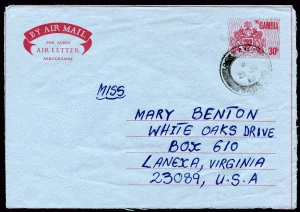 BY AIR MAIL
PAR AVION
AIR LETTER
AEROGRAMME
THE GAMBIA
30b
MISS
MARY BENTON
WHITE OAKS DRIVE
BOX 610
LANEXA, VIRGINIA
23089, U.S.A